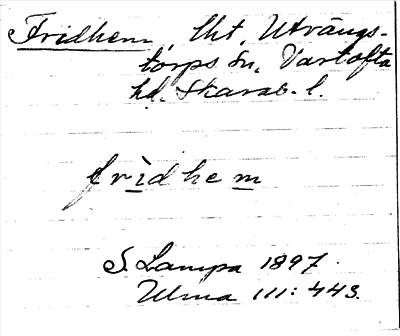 Fridhem, lht, Utvängs-
torps sn, Vartofta
hd, Skarab. l.
frìdhem
S. Lampa 1897.
Ulma 111: 443.